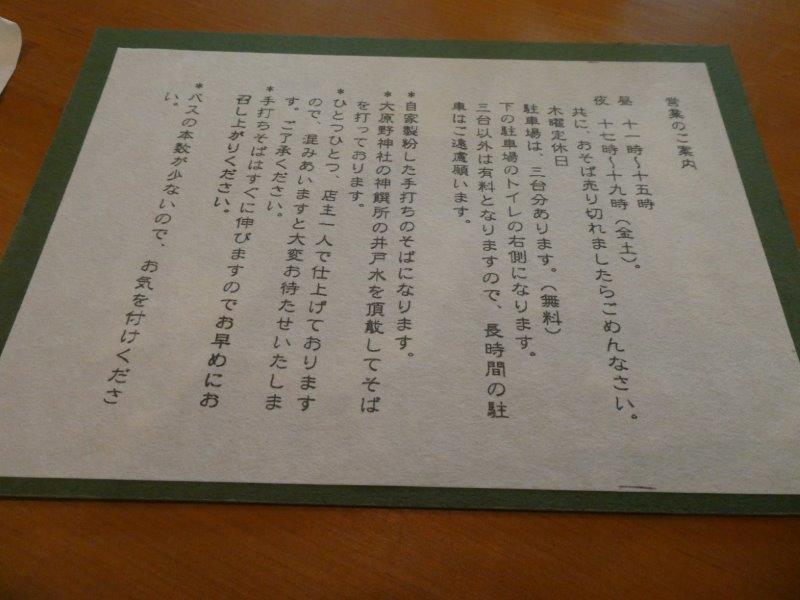 営業のご案内
昼 十一時〜十五時
夜 十七時〜十九時(金土)。
共に、おそば売り切れましたらごめんなさい。
木曜定休日
駐車場は、三台分あります。(無料)
下の駐車場のトイレの右側になります。
三台以外は有料となりますので、長時間の駐
車はご遠慮願います。
*自家製粉した手打ちのそばになります。
*大原野神社の神饌所の井戸水を頂戴してそば
を打っております。
*ひとつひとつ、店主一人で仕上げております
ので、混みあいますと大変お待たせいたしま
す。ご了承ください。
*手打ちそばはすぐに伸びますのでお早めにお
召し上がりください。
*バスの本数が少ないので、お気を付けくださ
い。